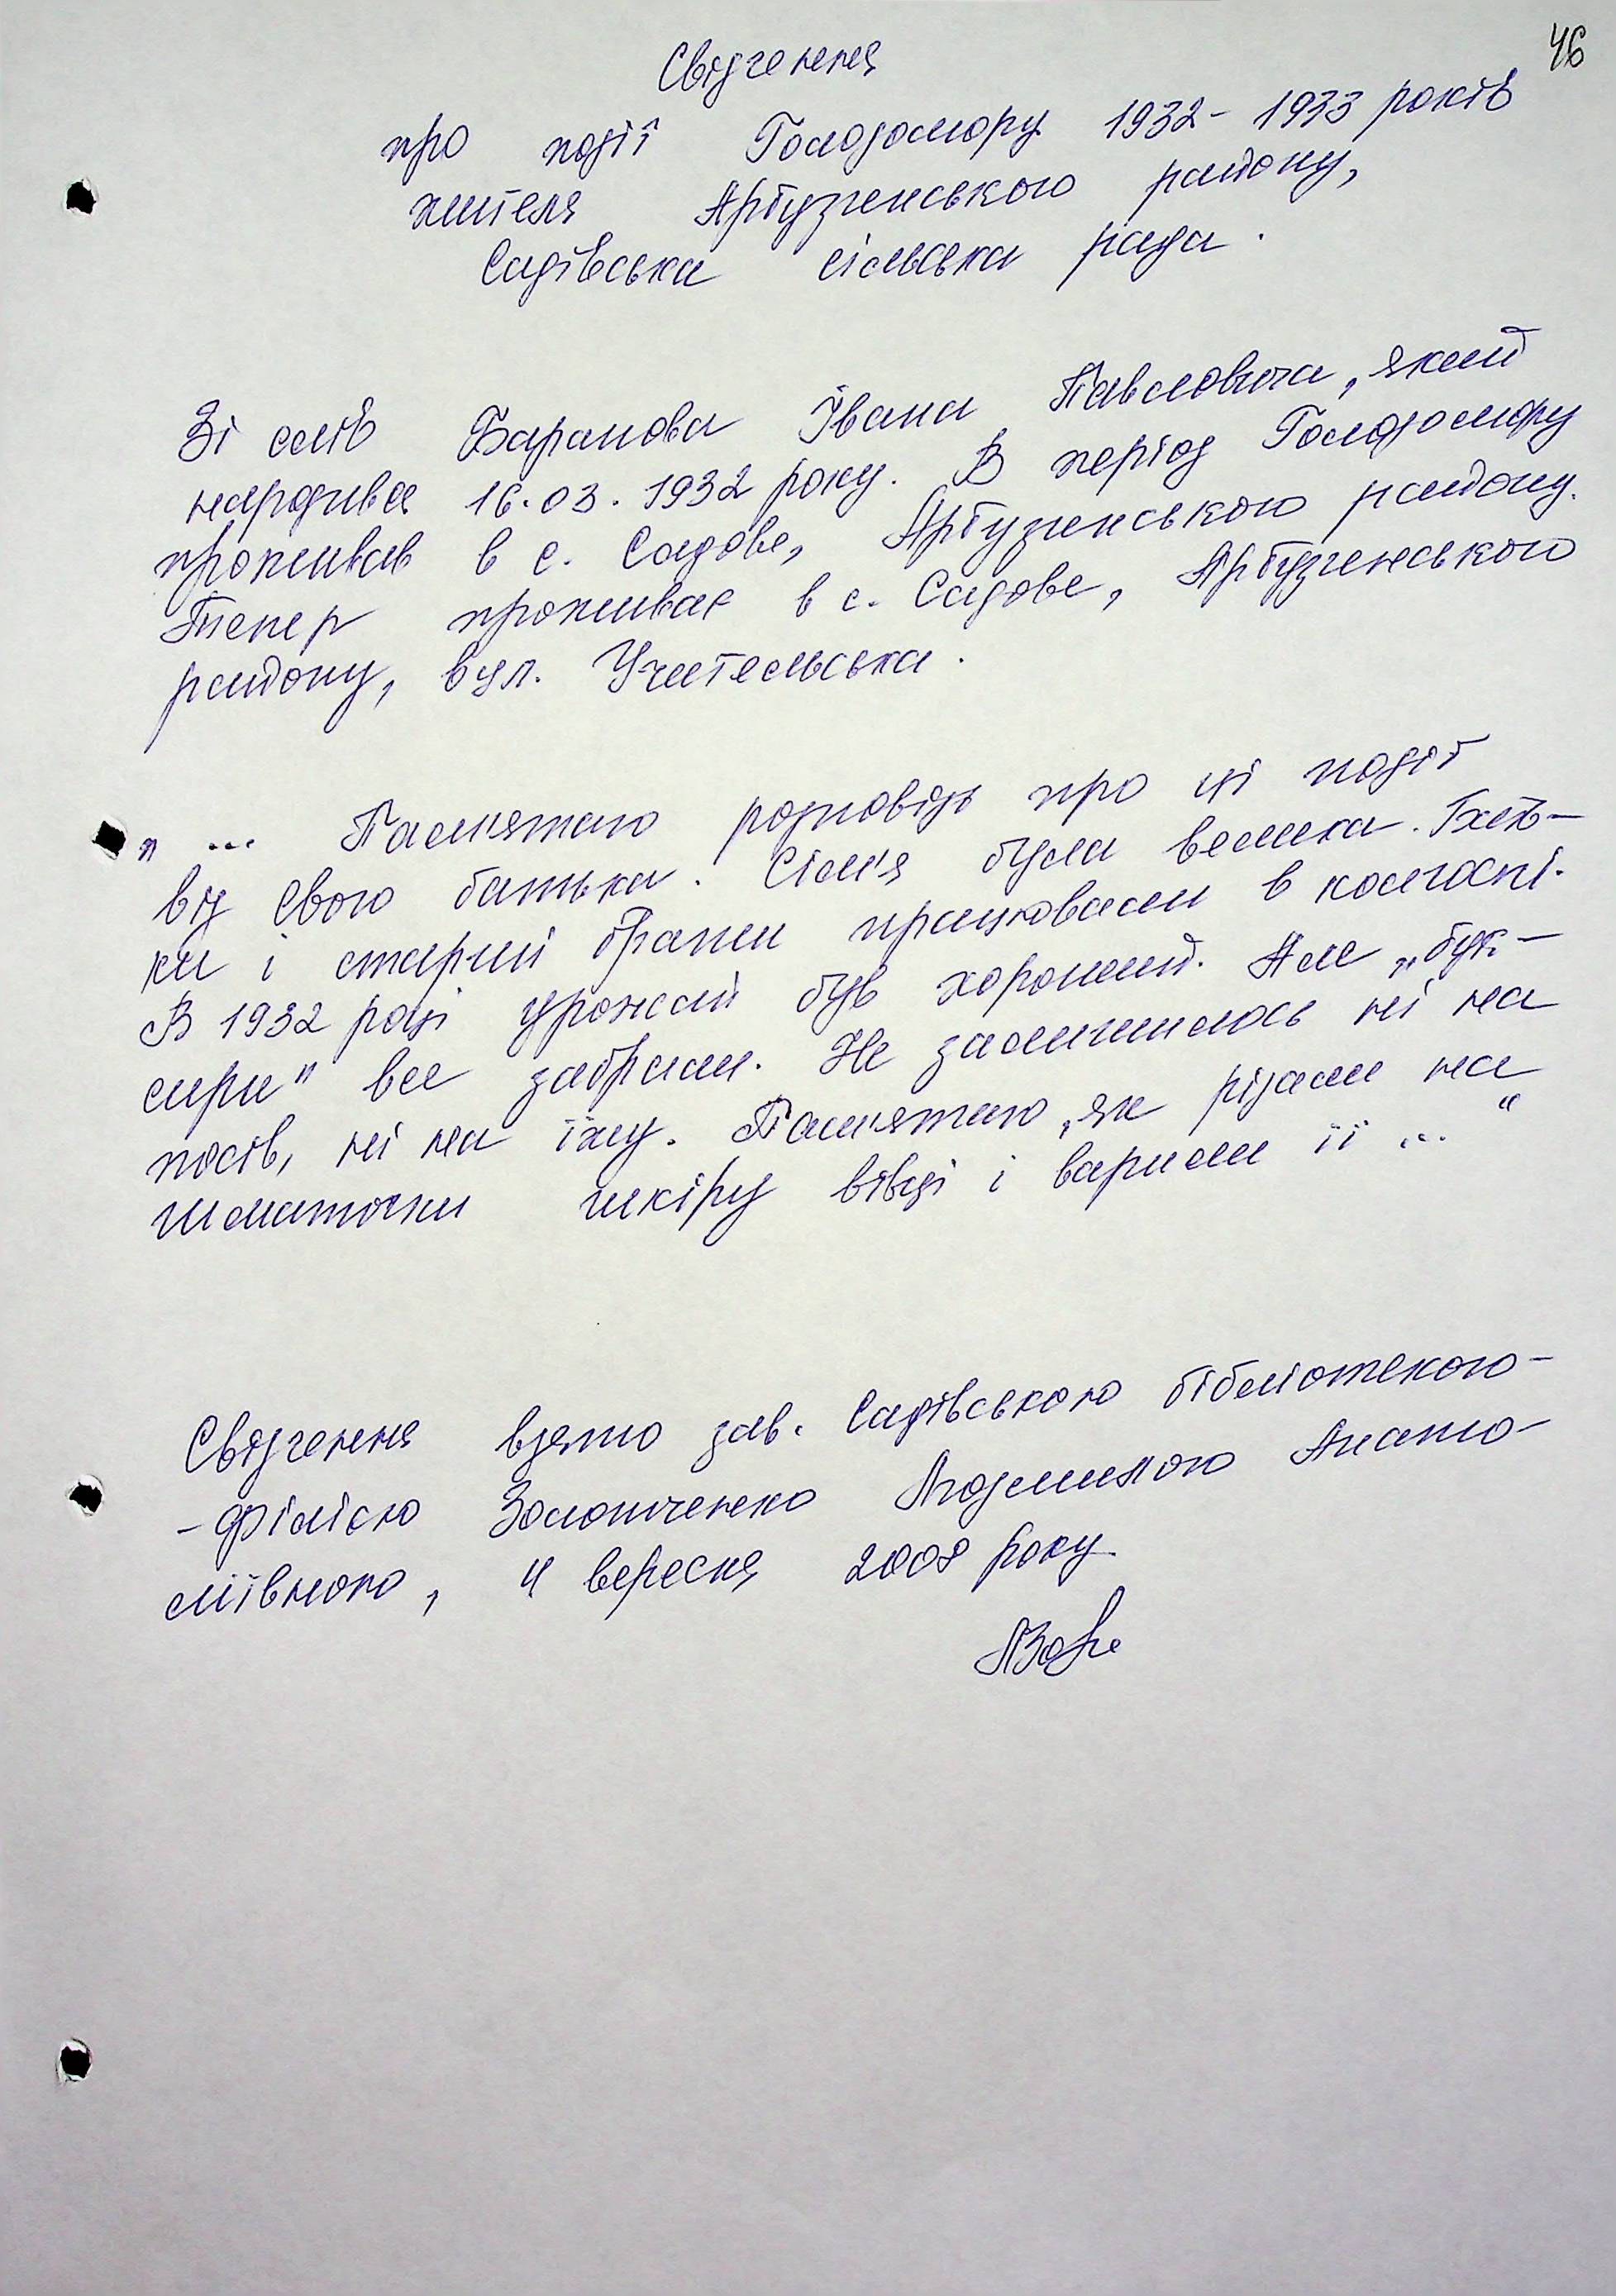 46
Свідчення
про події Голодомору 1932-1933 років
жителя Арбузинського району,
Садівська сільська рада.
Зі слів Баранова Івана Павловича, який
народився 16.03.1932 року. В період Голодомору
проживав в с. Садове, Арбузинського району.
Тепер проживає в с. Садове, Арбузинського
району, вул. Учительська.
„ ... Пам'ятаю розповідь про ці події
від свого батька. Сім'я була велика. Батьки
і старші брати працювали в колгоспі.
В 1932 році урожай був хороший. Але „бук-
сири" все забрали. Не залишилось ні на
посів, ні на їжу. Пам'ятаю, як різали на
шматочки шкіру вівці і варили її ... "
Свідчення взято зав. Садівською бібліотекою-
-філією Золотченко Людмилою Анато-
ліївною, 4 вересня 2008 року